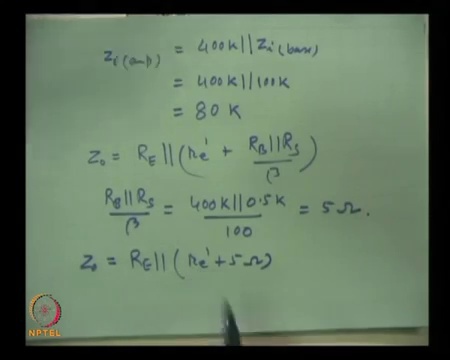 Zi(amp) = 400K || Zi(base)
= 400K || 100K
= 80 K
Zo = RE || (re' + RB || RS / β)
RB || RS / β = 400K || 0.5K / 100 = 5 Ω.
Zo = RE || (re' + 5 Ω)
NPTEL